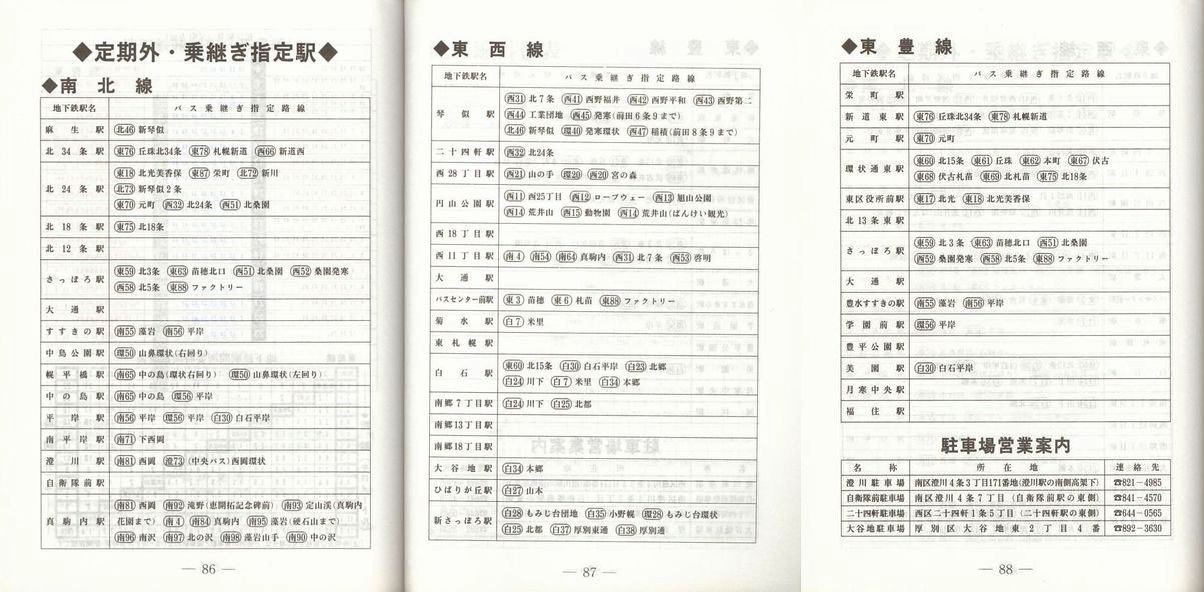 ◆定期外・乗継ぎ指定駅◆
◆南北線
地下鉄駅名 バス乗継ぎ指定路線
麻生駅 北46 新琴似
北34条駅 東76 丘珠北34条 東78 札幌新道 西66 新道西
北24条駅 東18 北光美香保 東87 栄町 北72 新川
北73 新琴似2条
東70 元町 西32 北24条 西51 北桑園
北18条駅 東75 北18条
北12条駅
さっぽろ駅 東59 北3条 東63 苗穂北口 西51 北桑園 西52 桑園発寒
西58 北5条 東88 ファクトリー
大通駅
すすきの駅 南55 藻岩 南56 平岸
中島公園駅 環50 山鼻環状(右回り)
幌平橋駅 南65 中の島(環状右回り) 環50 山鼻環状(左回り)
中の島駅 南65 中の島 環56 平岸
平岸駅 南56 平岸 環56 平岸 白30 白石平岸
南平岸駅 南71 下西岡
澄川駅 南81 西岡 澄73 (中央バス)西岡環状
自衛隊前駅
真駒内駅 南81 西岡 南92 滝野(恵開拓記念碑前) 南93 定山渓(真駒内
花園まで) 南4 南84 真駒内 南95 藻岩(硬石山まで)
南96 南沢 南97 北の沢 南98 藻岩山手 南90 中の沢
― 86 ―
◆東西線
地下鉄駅名 バス乗継ぎ指定路線
琴似駅 西31 北7条 西41 西野福井 西42 西野平和 西43 西野第二
西44 工業団地 西45 発寒(前田6条9まで)
北46 新琴似 環40 発寒環状 西47 稲積(前田8条9まで)
二十四軒駅 西32 北24条
西28丁目駅 西21 山の手 環20 西20 宮の森
円山公園駅 西11 西25丁目 西12 ロープウェー 西13 旭山公園
西14 荒井山 西15 動物園 西14 荒井山(ばんけい観光)
西18丁目駅
西11丁目駅 南4 南54 南64 真駒内 西31 北7条 西53 啓明
大通駅
バスセンター前駅 東3 苗穂 東6 札苗 東88 ファクトリー
菊水駅 白7 米里
東札幌駅
白石駅 東60 北15条 白30 白石平岸 白23 北郷
白24 川下 白7 米里 白34 本郷
南郷7丁目駅 白24 川下 白25 北都
南郷13丁目駅
南郷18丁目駅
大谷地駅 白34 本郷
ひばりが丘駅 白27 山本
新さっぽろ駅 白28 もみじ台団地 白35 小野幌 環28 もみじ台環状
白25 北都 白37 厚別東通 白38 厚別通
― 87 ―
◆東豊線
地下鉄駅名 バス乗継ぎ指定路線
栄町駅
新道東駅 東76 丘珠北34条 東78 札幌新道
元町駅 東70 元町
環状通東駅 東60 北15条 東61 丘珠 東62 本町 東67 伏古
東68 伏古札苗 東69 北札苗 東75 北18条
東区役所前駅 東17 北光 東18 北光美香保
北13条東駅
さっぽろ駅 東59 北3条 東63 苗穂北口 西51 北桑園
西52 桑園発寒 西58 北5条 東88 ファクトリー
大通駅
豊水すすきの駅 南55 藻岩 南56 平岸
学園前駅 環56 平岸
豊平公園駅
美園駅 白30 白石平岸
月寒中央駅
福住駅
駐車場営業案内
名称 所在地 連絡先
澄川駐車場 南区澄川4条3丁目171番地(澄川駅の南側高架下) ☎821-4985
自衛隊前駐車場 南区澄川4条7丁目(自衛隊前駅の東側) ☎841-4570
二十四軒駐車場 西区二十四軒1条5丁目(二十四軒駅の東側) ☎644-0565
大谷地駐車場 厚別区大谷地東2丁目4番 ☎892-3630
― 88 ―